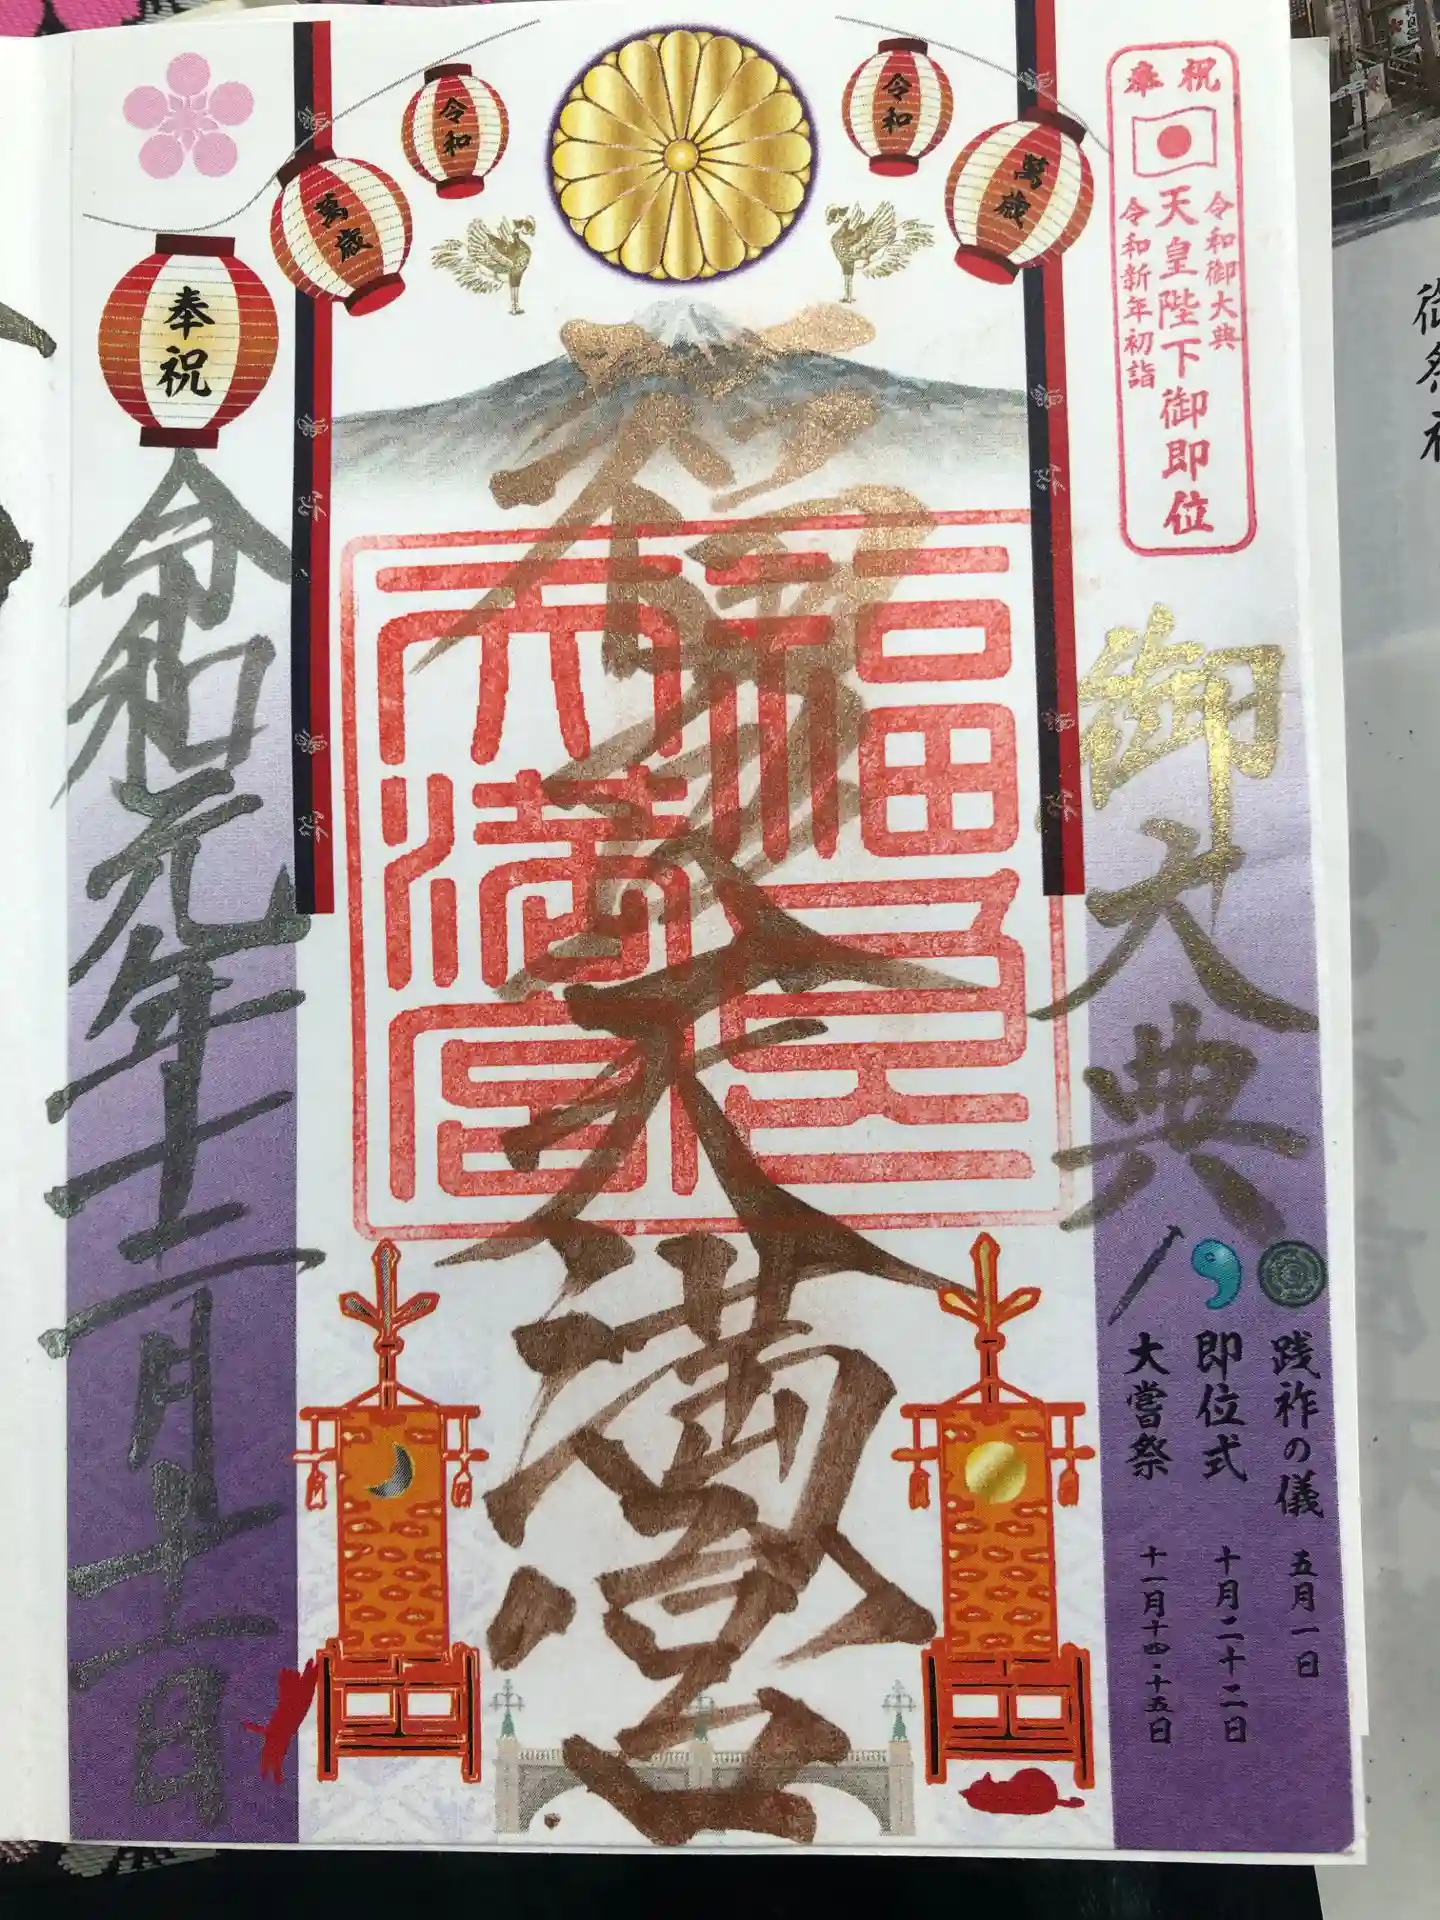 奉祝
令和御大典
天皇陛下御即位
令和新年初詣
御大典
践祚の儀 五月一日
即位式 十月二十二日
大嘗祭 十一月十四・十五日
令和
萬歳
令和
萬歳
奉祝
福良天満宮
福良
天満宮
令和元年十二月十一日